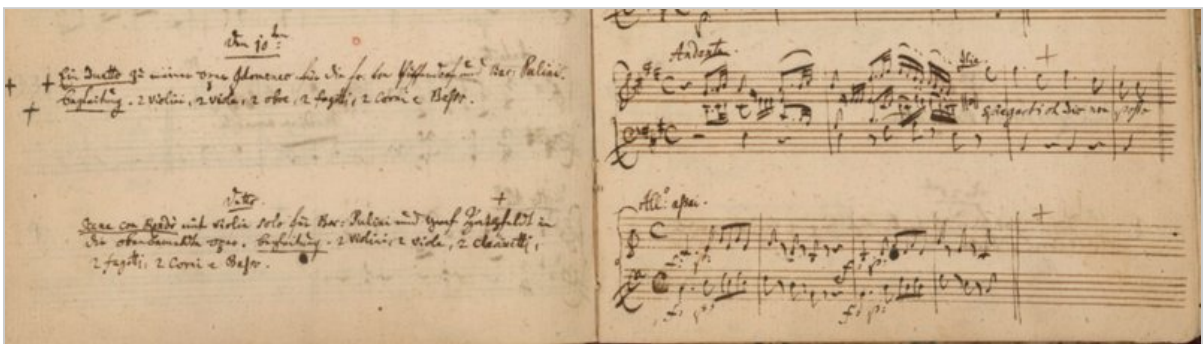 Den 10:ten
Ein Duetto zu meiner oper Idomeneo. für die fr: von Puffendorf und Bar: Pulini.
begleitung. 2 violini, 2 viole, 2 oboe, 2 fagotti, 2 Corni e Baßo.
Detto.
Scena con Rondò mit violin Solo für Bar: Pulini und graf Hatzfeldt in
die obenbemeldte oper. begleitung. 2 violini, 2 viole, 2 clarinetti,
2 fagotti, 2 Corni e Baßo.
Andante.
Ilia.
Spiegarti oh Dio non posso
All:o assai.
f: p: f: p:
f: p: f: p: